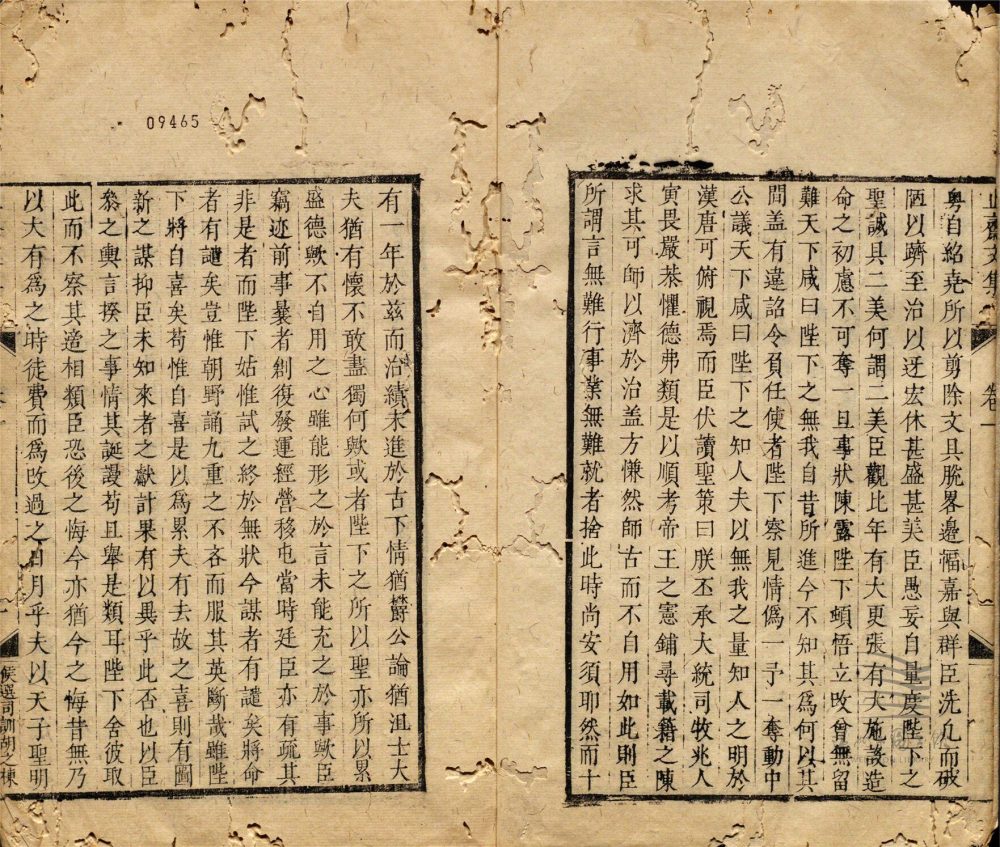 止齋文集
卷一
粤自紹堯所以剪除文具脫畧邊幅嘉與群臣洗凢而破
陋以躋至治以迓宏休甚盛甚美臣愚妄自量度陛下之
聖誠具二美何謂二美臣觀比年有大更張有大施設造
命之初慮不可奪一旦事狀陳露陛下頓悟立攺曾無留
難天下咸曰陛下之無我自昔所進今不知其爲何以其
間盖有違詔令負任使者陛下察見情僞一予一奪動中
公議天下咸曰陛下之知人夫以無我之量知人之明於
漢唐可俯視焉而臣伏讀聖策曰朕丕承大統司牧兆人
寅畏嚴恭懼德弗類是以順考帝王之憲鋪尋載籍之陳
求其可師以濟於治盖方慊然師古而不自用如此則臣
所謂言無難行事業無難就者捨此時尚安須耶然而十
有一年於茲而治績未進於古下情猶欝公論猶沮士大
夫猶有懷不敢盡獨何歟或者陛下之所以聖亦所以累
盛德歟不自用之心雖能形之於言未能充之於事歟臣
竊迹前事曩者創復發運經營移屯當時廷臣亦有疏其
非是者而陛下姑惟試之終於無狀今謀者有譴矣將命
者有譴矣豈惟朝野誦九重之不吝而服其英斷哉雖陛
下將自喜矣苟惟自喜是以爲累夫有去故之喜則有圖
新之謀抑臣未知來者之獻計果有以異乎此否也以臣
叅之輿言揆之事情其誕謾苟且舉是類耳陛下舍彼取
此而不察其適相類臣恐後之悔今亦猶今之悔昔無乃
以大有爲之時徒費而爲攺過之日月乎夫以天子聖明
候選司訓胡之棟
09465